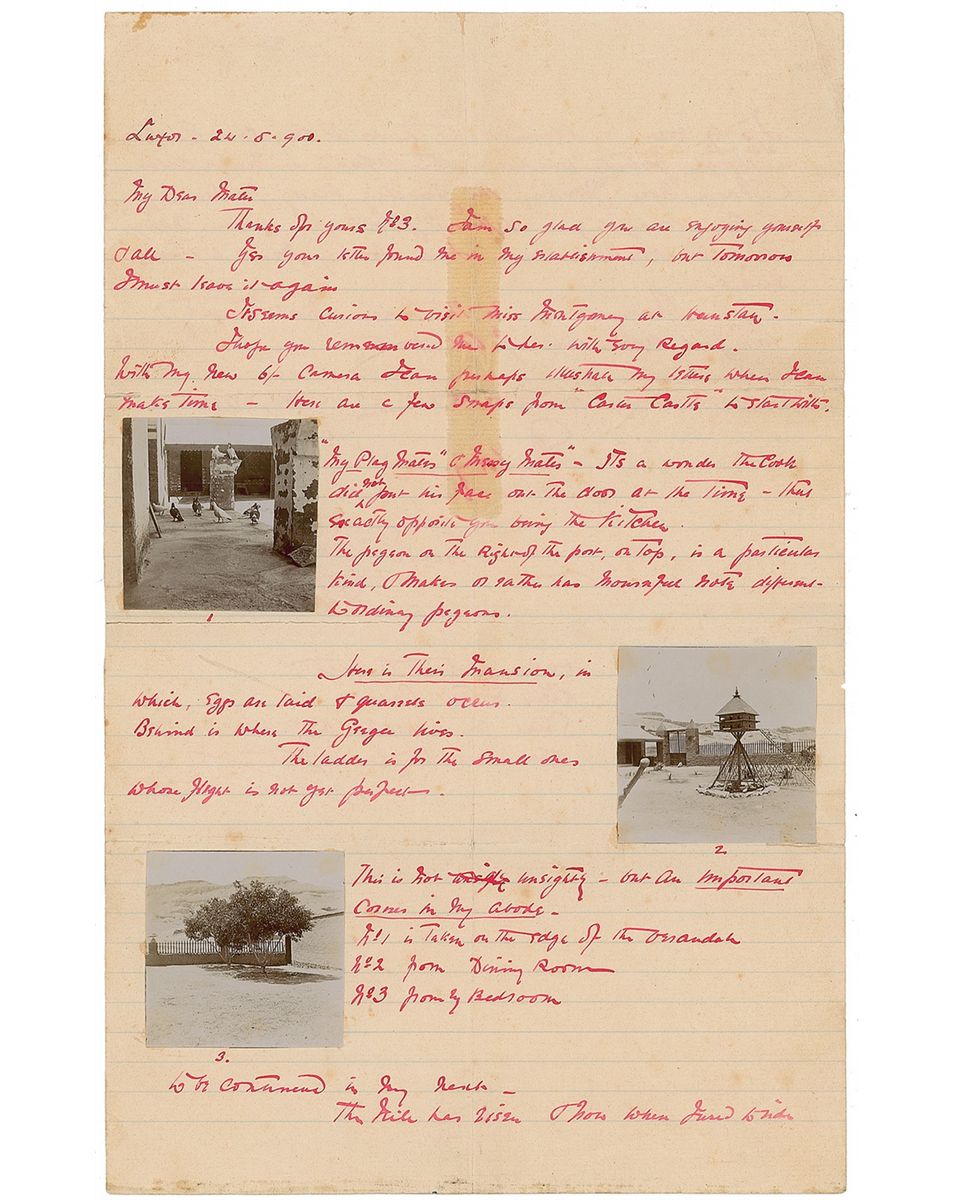 Luxor - 24 · 8 · 900.
My Dear Mater
Thanks for yours No3. I am so glad you are enjoying yourselfs
& all - Yes your letter found me in my establishment, but tomorrow
I must leave it again
It seems curious to visit Miss Montgomery at
I hope you remembered me to her with Every Regard.
With my new 6/- Camera I can perhaps illustrate my letters when I can
make time - Here are a few snaps from " Castle" to start with.
"My Play Mates" & Messy Mates" - Its a wonder the Cook
did not put his face out the door at the time - that
exactly opposite you being the Kitchen
The pegeon on the right of the post, on top, is a particular
kind, & makes or rather has mournful note different
to ordinary pegeons.
1
Here is their Mansion, in
which, Eggs are laid & quarrels occur.
Behind is where the lives.
The ladder is for the small ones
whose flight is not yet perfect
2
This is not unsightly - but an important
Corner in my abode -
No1 is taken on the edge of the verandah
No2 from Dining Room
No3 from my Bedroom
3.
to be continued in my next -
The Nile has risen & now when